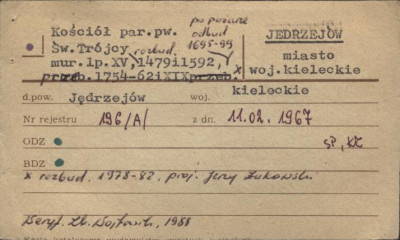 Kościół par.pw.
po pożarze
odbud
1695-99
JĘDRZEJÓW
Św.Trójcy rozbud.
miasto
mur. 1p.XV, 1479i1592, x
woj.kieleckie
przeb. 1754-62iXIX przeb.
kieleckie
d.pow. Jędrzejów woj.
Nr rejestru 196/A/ z dn. 11.02. 1967
ODZ
BDZ
x rozbud. 1978-82, proj. Jerzy Żukowski
Weryf. 1988